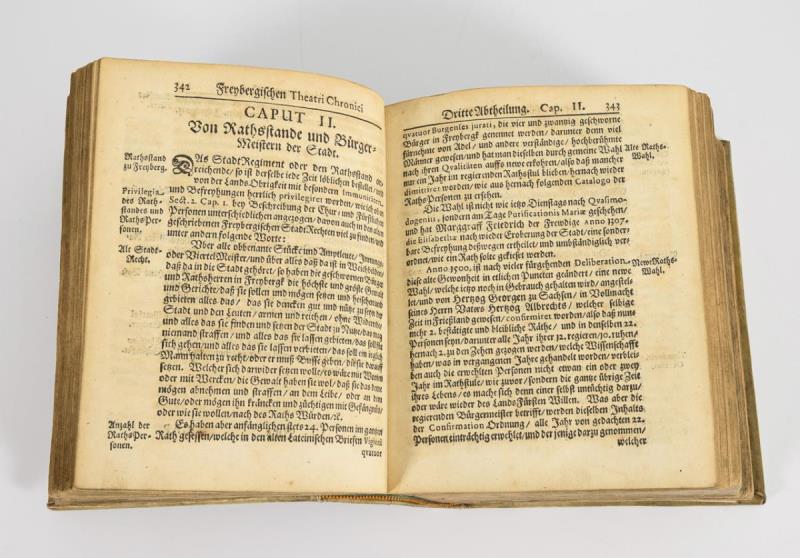 342 Freybergischen Theatri Chronici
CAPUT II.
Von Rathsstande und Bürger-
Meistern der Stadt.
Rathsstand
zu Freyberg.
DAs StadtRegiment oder den Rathsstand
reichende/ so ist derselbe iede Zeit löblichen bestellet/
von der Lands-Obrigkeit mit besondern Immunitäten
und Befreyhungen herrlich privilegiret worden/ wie ich
Privilegia
des Rath-
standes und
RathsPer-
sonen.
Sect. 2. Cap. 1. bey Beschreibung der Chur- und Fürstlichen
Personen unterschiedlichen angezogen/ davon auch in den alten
geschriebenen Freybergischen StadtRechten viel zu finden/ und
unter andern folgende Worte:
Alt Stadt-
Recht.
Uber alle obbenante Stücke und Amptleute/ Innunge
oder ViertelMeister/ und über alles daß da ist in Weichbilde/
daß da in die Stadt gehöret/ so haben die geschwornen Bürger
und Rathsherren in Freybergk die höchste und gröste Gewalt
und Gerichte/ daß sie sollen und mögen setzen und heischen und
gebieten alles das/ das sie duncken gut und nütz zu seyn der
Stadt und den Leuten/ armen und reichen/ ohne Widerrede/
und alles das sie finden und setzen der Stadt zu Nutze/ darumb
niemand straffen/ und alles das sie lassen gebieten/ das soll
sich gehen/ und alles das sie lassen verbieten/ das soll ein ieglich
Mann halten zu recht/ oder er muß Busse geben/ die sie darauff
setzen. Welcher sich darwider setzen wolle/ es wäre mit Worten
oder mit Wercken/ die Gewalt haben sie wol/ daß sie das
mögen abnehmen und straffen/ an dem Leibe/ oder an dem
Gute/ oder mögen ihn kräncken und züchtigen mit Gefängniß/
oder wie sie wollen/ nach des Raths Würden/ ꝛc.
Anzahl der
RathsPer-
sonen.
Es haben aber anfänglichen stets 24. Personen im gantzen
Rath gesessen/ welche in den alten Lateinischen Briefen Viginti
qvatuor
Dritte Abtheilung. Cap. II. 343
qvatuor Burgenses jurati, die vier und zwantzig geschworne
Bürger in Freybergk genennet werden/ darunter denn viel
fürnehme von Adel/ und andere verständige/ hochberühmte
Männer gewesen/ und hat man dieselben durch gemeine Wahl
Alte Raths-
Wahl.
nach ihren Qvalitäten auffs neue erkohren/ also daß mancher
nur ein Jahr im regierenden Rathstul blieben/ hernach wieder
dimittiret worden/ wie aus hernach folgenden Catalogo der
RathsPersonen zu ersehen.
Die Wahl ist nicht wie ietzo Dienstages nach Qvasimo-
dogenitis, sondern am Tage Purificationis Mariæ geschehen/
und hat Marggraff Friedrich der Freudige Anno 1307.
die Elisabethæ nach wieder Eroberung der Stadt/ eine sonder-
bare Befreyhung deswegen ertheilet/ und umbständiglich ver-
ordnet/ wie ein Rath solte gekieset werden.
Anno 1500. ist nach vieler fürgehenden Deliberation
NeweRaths-
Wahl.
diese alte Gewonheit in etlichen Puncten geändert/ eine newe
Wahl/ welche ietzo noch in Gebrauch gehalten wird/ angestel-
let/ und von Hertzog Georgen zu Sachsen/ in Vollmacht
seines Herrn Vaters Hertzog Albrechts/ welcher selbige
Zeit in Frießland gewesen/ confirmiret worden/ also daß nun-
mehr 2. bestätigte und bleibliche Räthe/ und in denselben 22.
Personen seyn/ darunter alle Jahr ihrer 12. regieren/ 10. ruhen/
hernach 2. zu den Zehen gezogen werden/ welche Wissenschafft
haben/ was in vergangenen Jahre gehandelt worden/ verblei-
ben auch die erwehlten Personen nicht etwan ein oder zwey
Jahr im Rathstule/ wie zuvor/ sondern die gantze übrige Zeit
ihres Lebens/ es mache sich denn einer selbst untüchtig darzu/
oder wäre wieder des LandsFürsten Willen. Was aber die
regierenden Bürgermeister betrifft/ werden dieselben Inhalts
der Confirmation Ordnung/ alle Jahr von gedachten 22.
Personen einträchtig erwehlet/ und der jenige darzu genommen/
welcher